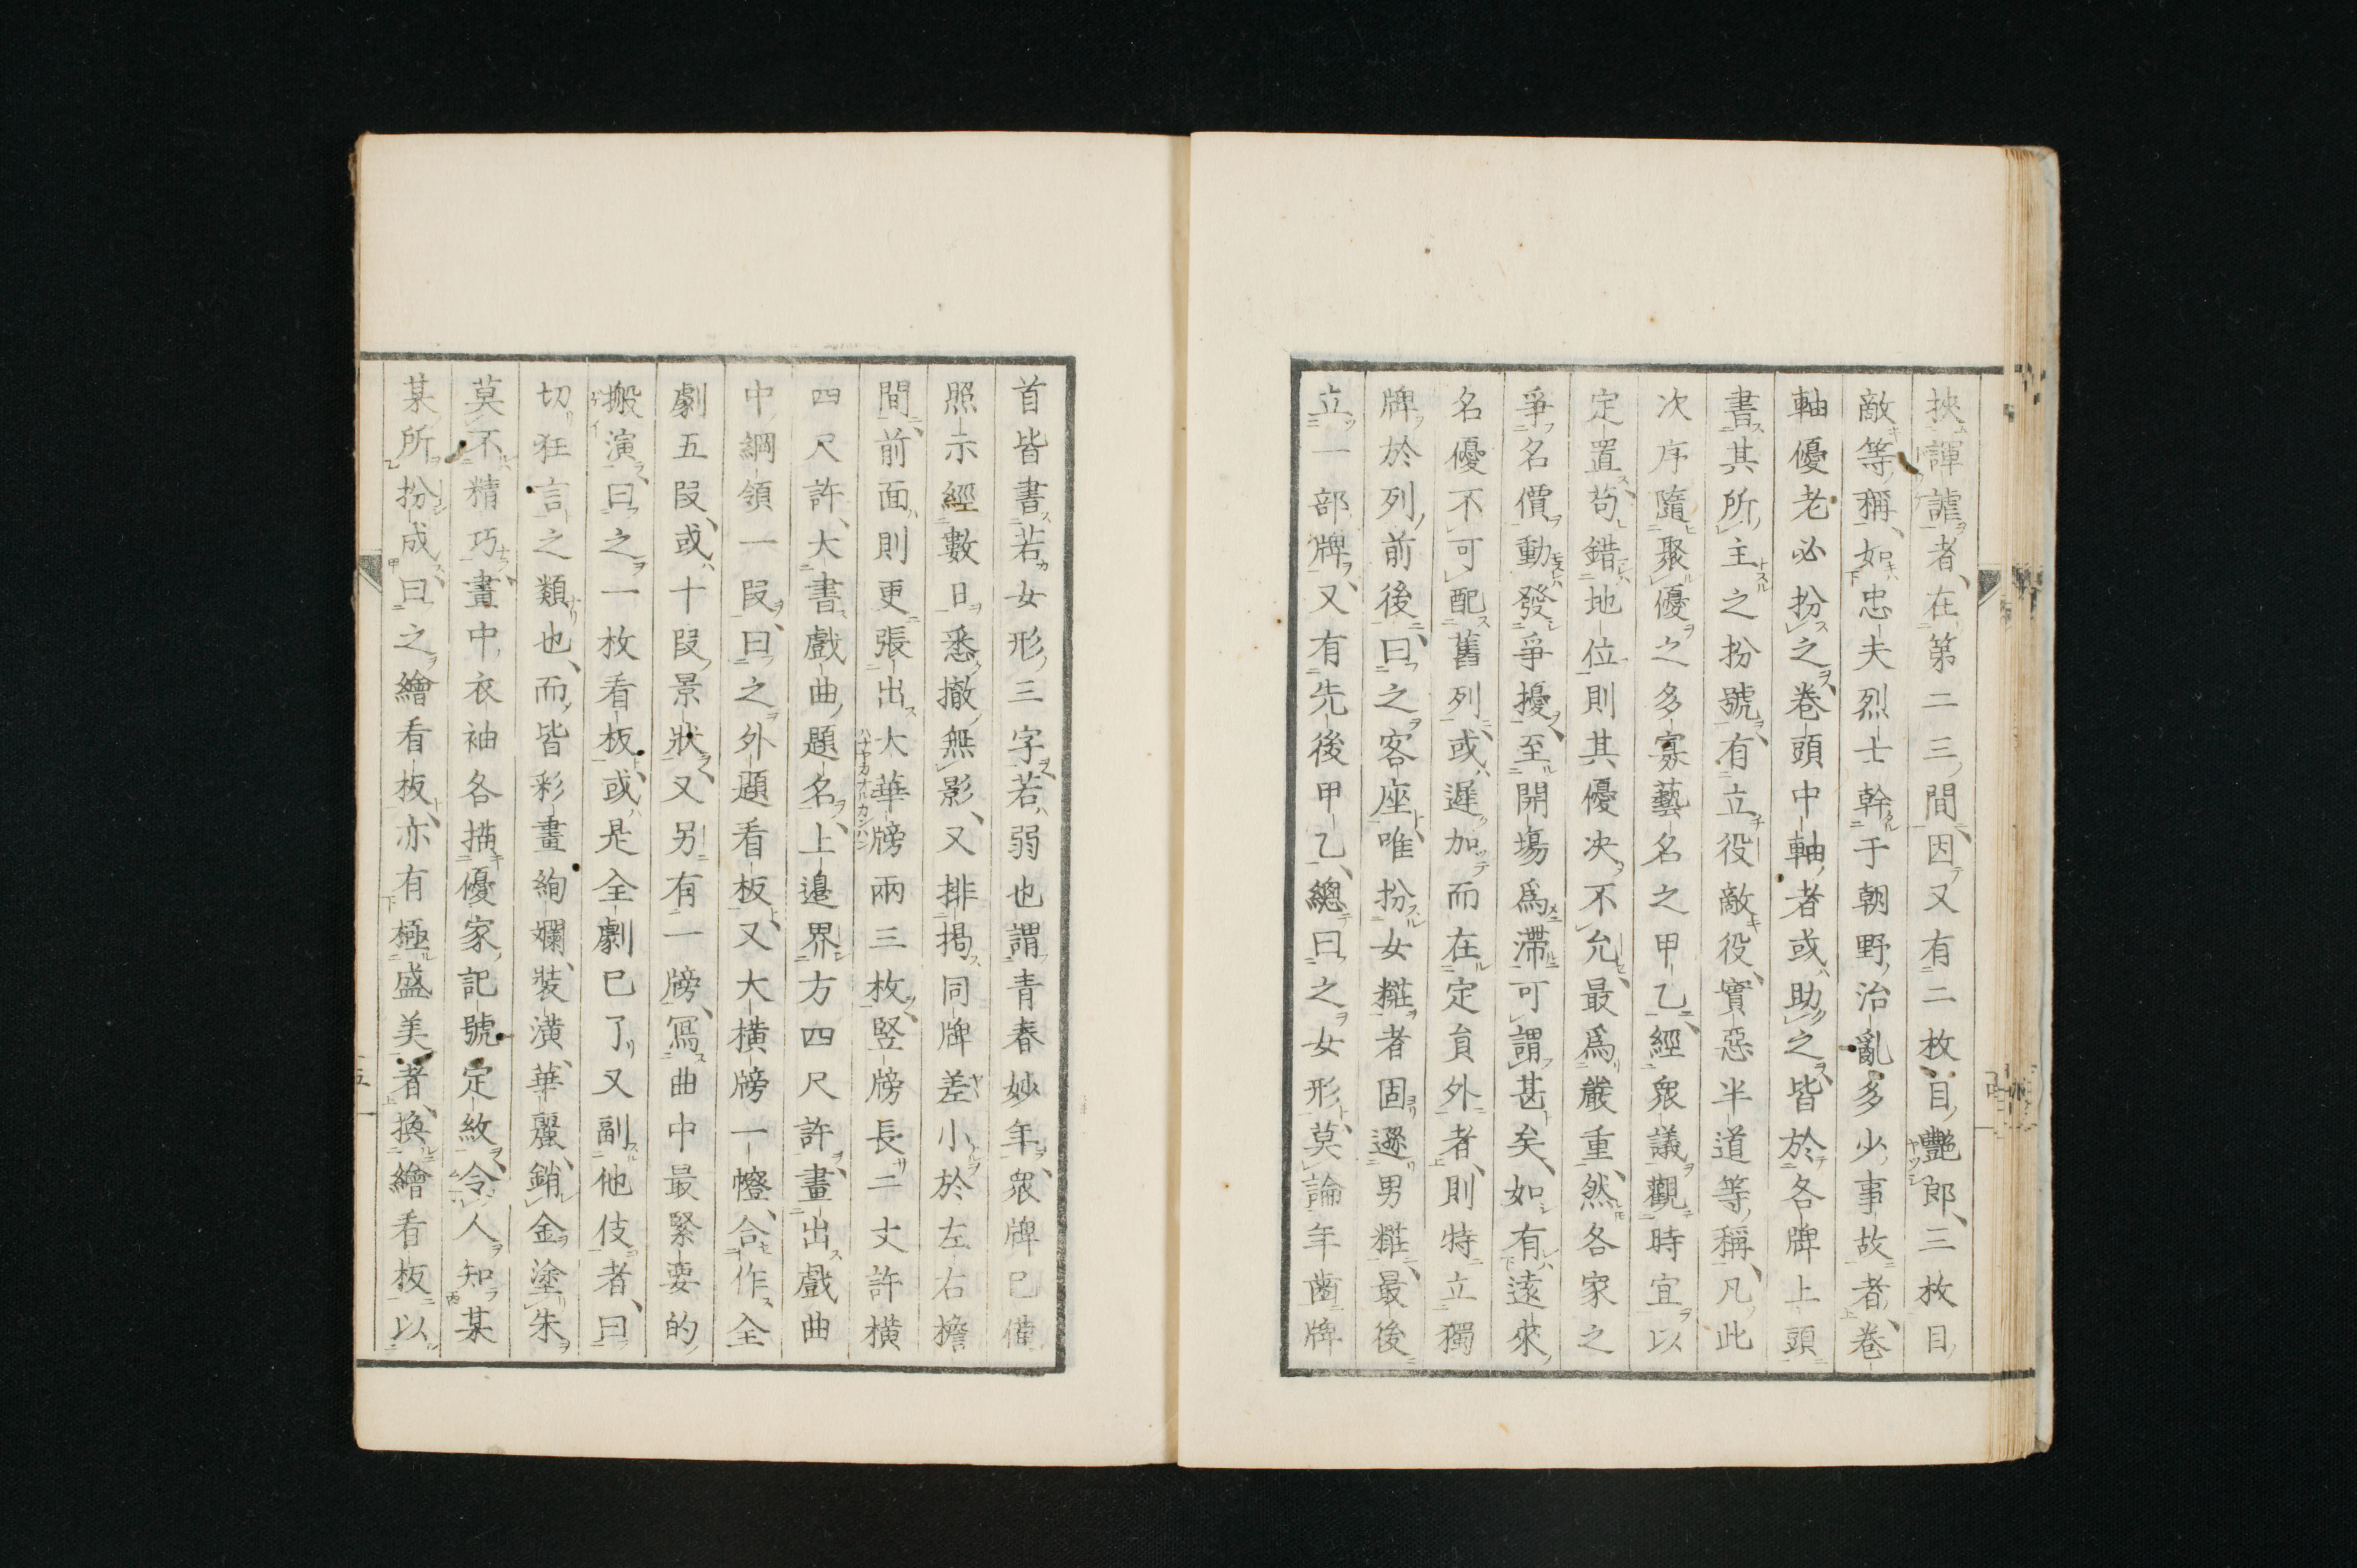 挾諢謔者在第二三間因又有二枚目艷郎三枚目
敵等稱如忠夫烈士幹于朝野治亂多少事故者卷
軸優老必扮之卷頭中軸者或助之皆於各牌上頭
書其所主之扮號有立役敵役實惡半道等稱凡此
次序隨聚優之多寡藝名之甲乙經衆議觀時宜以
定置苟錯地位則其優决不允最爲嚴重然各家之
爭名價動發爭擾至開場爲滯可謂甚矣如有遠來
名優不可配舊列或遲加而在定員外者則特立獨
牌於列前後曰之客座唯扮女糚者固遜男糚最後
立一部牌又有先後甲乙總曰之女形莫論年齒牌
首皆書若女形三字若弱也謂青春妙年衆牌已備
照示經數日悉撤無影又排掲同牌差小於左右擔
間前面則更張出大華牓兩三枚竪牓長二丈許横
四尺許大書戲曲題名上邉界方四尺許畫出戲曲
中綱領一叚曰之外題看板又大横牓一幢合作全
劇五叚或十叚景狀又另有一牓寫曲中最緊要的
搬演曰之一枚看板或是全劇已了又副他伎者曰
切狂言之類也而皆彩畫絢爛裝潢華麗銷金塗朱
莫不精巧畫中衣袖各描優家記號定紋令人知某
某所扮成曰之繪看板亦有極盛美者換繪看板以
五